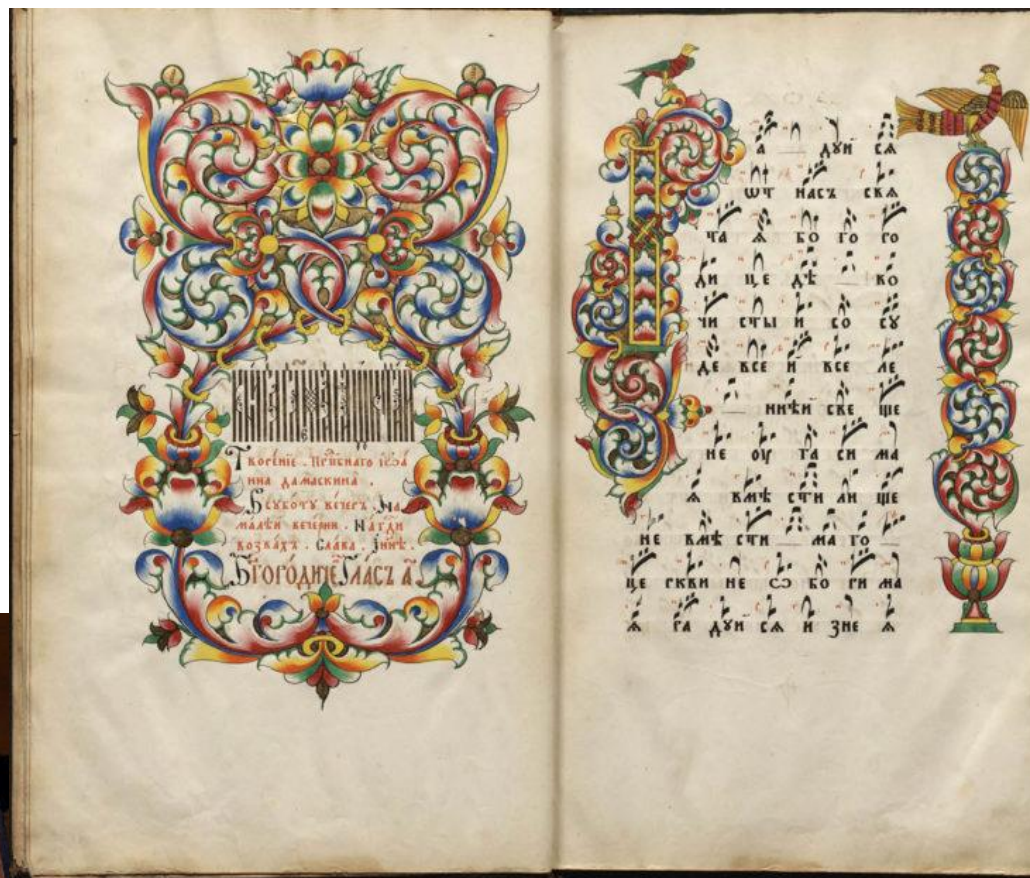 Творе́нїе . Прпⷣбнаго їѡа́
нна дамаскина .
В сꙋбо́тꙋ ве́черъ . На
ма́лѣй вече́рни . На гдⷭи
возвахъ . Сла́ва . 
Бг҃оро́диче Гласъ а҃
Ра дꙋй сѧ
ѿ насъ свѧ
та ѧ бо го ро
ди це дѣ во
чи сты и со сꙋ
де все и все ле
ннѣй све ще
не оу га си ма
ѧ вмѣ сти ли ще
не вмѣ сти ма го
це ркви не ѡ бо ри ма
ѧ ра дꙋй сѧ и зне ѧ